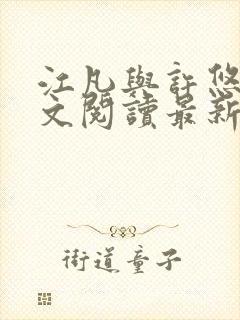 江凡與許悠
文閱讀最新
街道童子